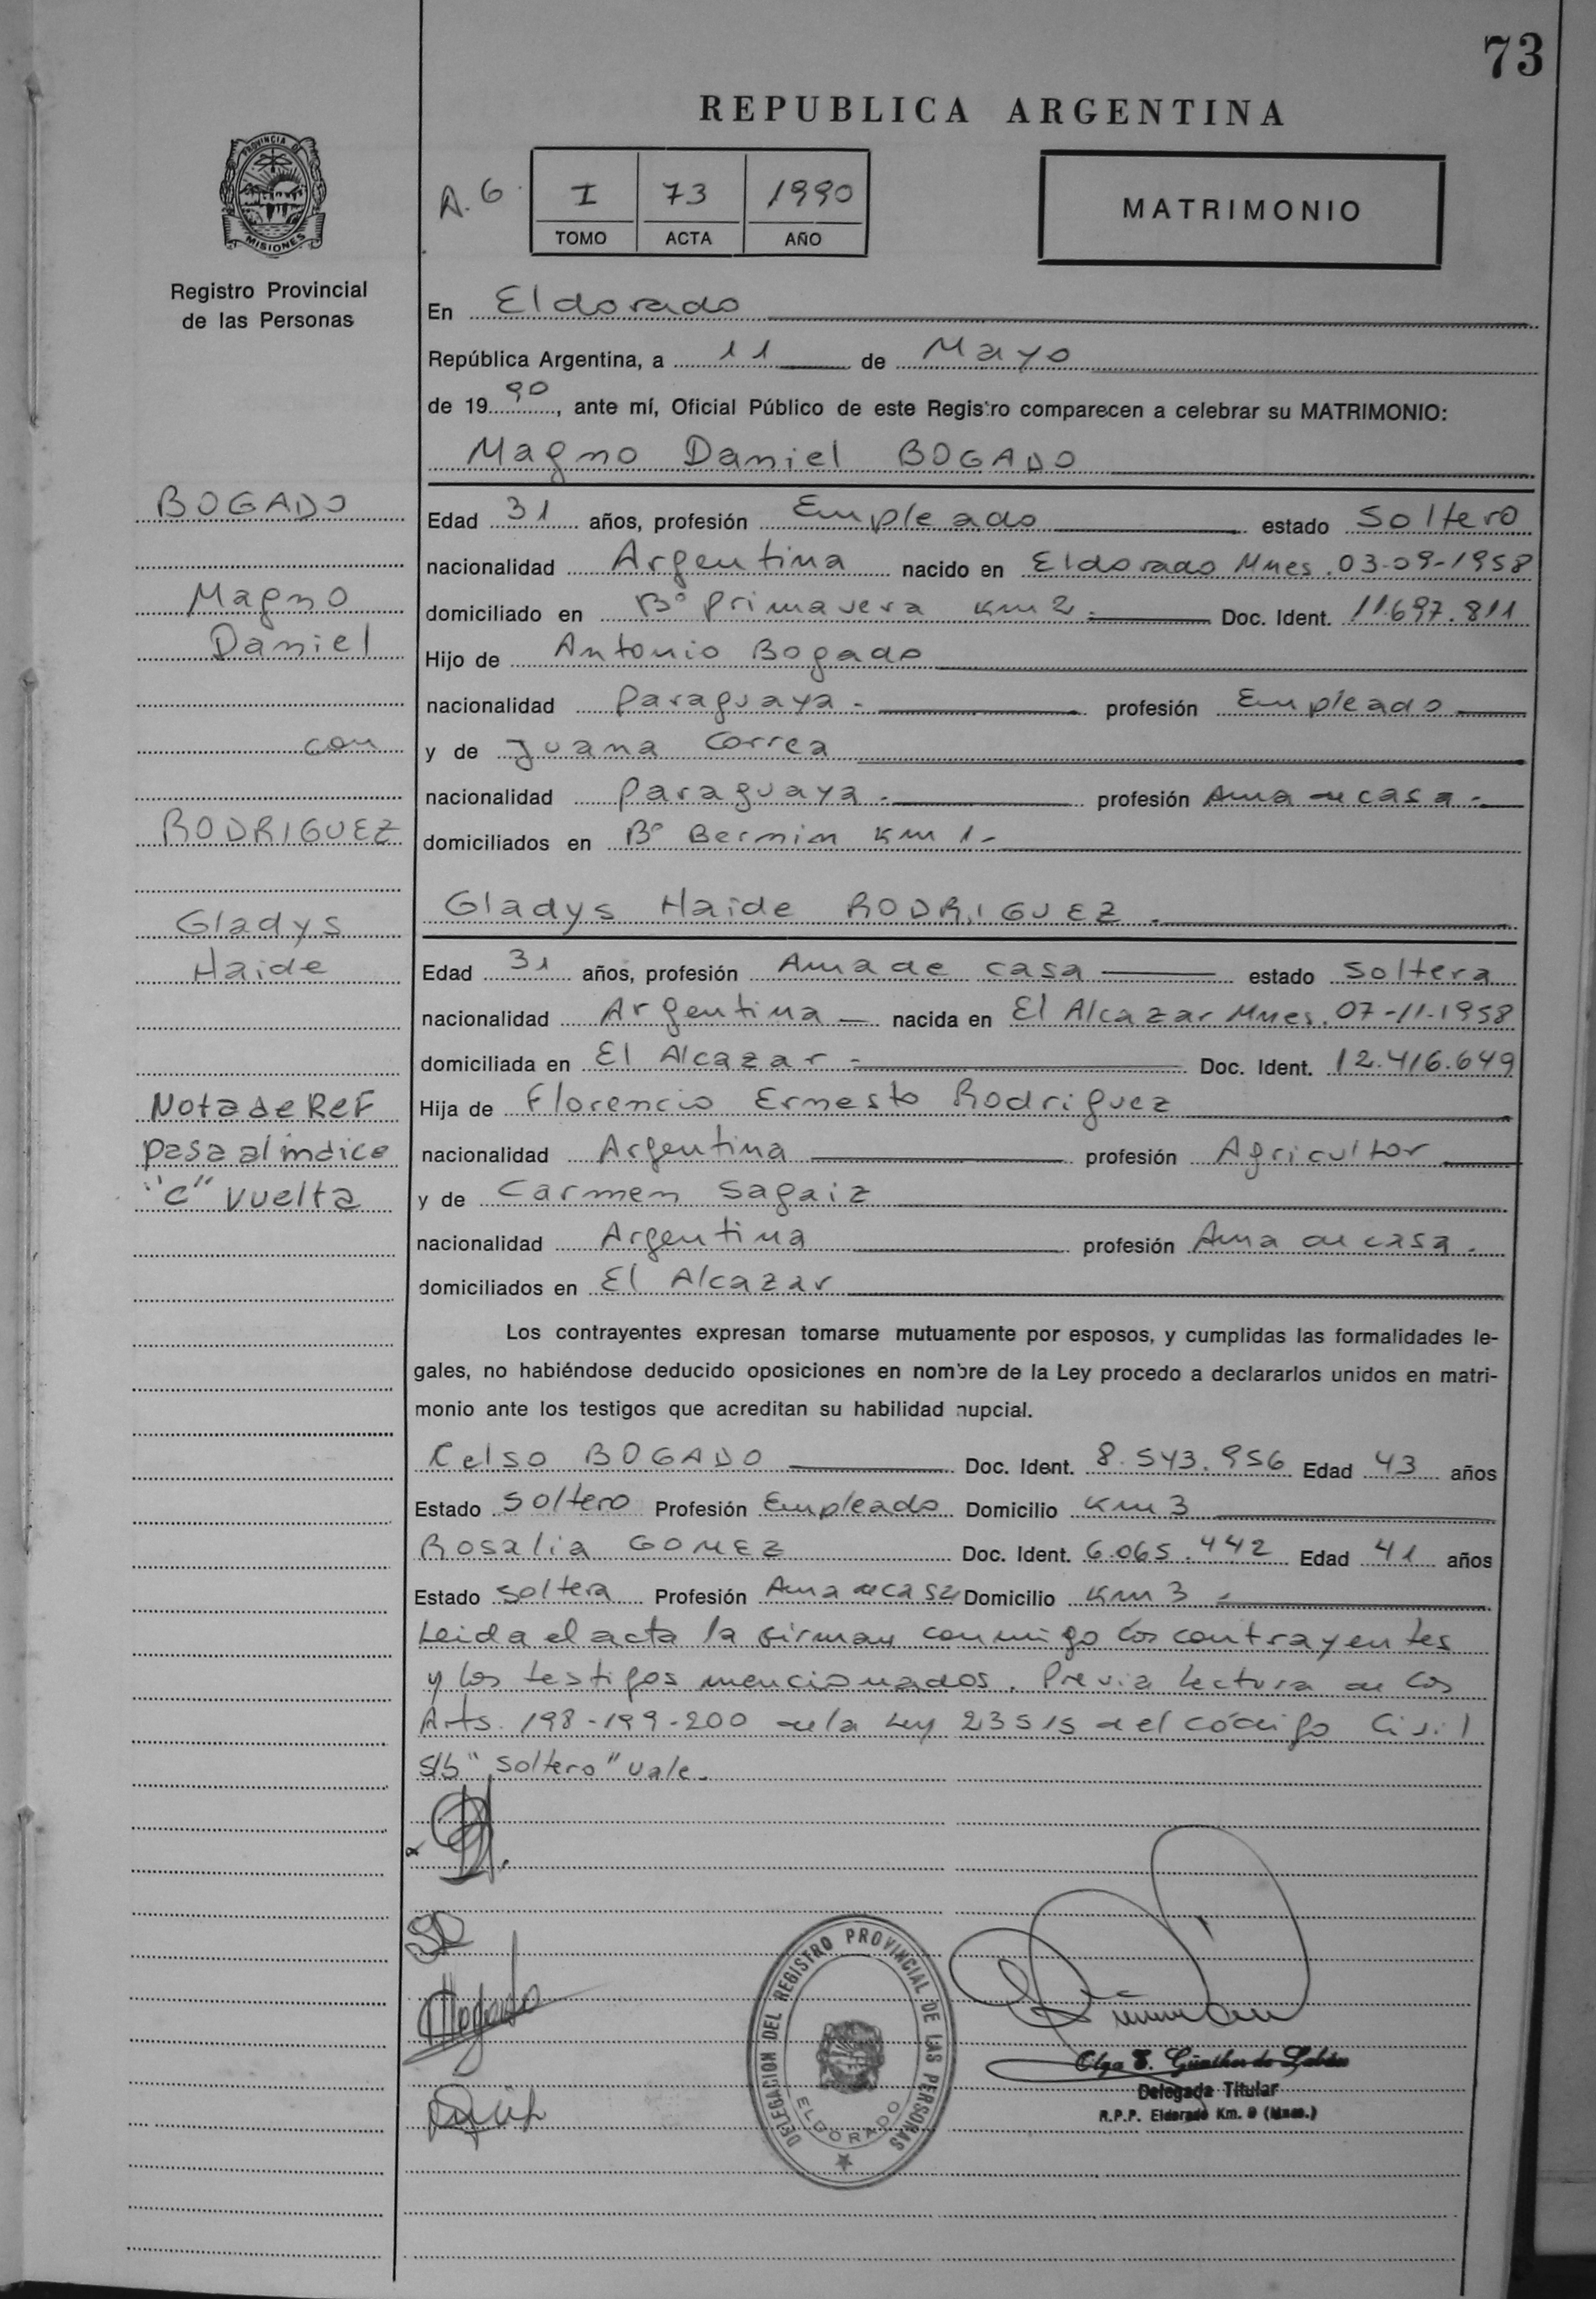 73
REPUBLICA ARGENTINA
PROVINCIA DE
MISIONES
Registro Provincial
de las Personas
A. G
I 73 1990
TOMO ACTA AÑO
MATRIMONIO
En Eldorado
República Argentina, a 11 de Mayo
de 1990, ante mí, Oficial Público de este Registro comparecen a celebrar su MATRIMONIO:
Magno Daniel BOGADO
BOGADO
Magno
Daniel
con
RODRIGUEZ
Gladys
Haide
Nota de Ref
pasa al indice
"C" vuelta
Edad 31 años, profesión Empleado estado Soltero
nacionalidad Argentina nacido en Eldorado Mnes. 03-09-1958
domiciliado en Bº Primavera Km 2.- Doc. Ident. 11.697.811
Hijo de Antonio Bogado
nacionalidad Paraguaya.- profesión Empleado
y de Juana Correa
nacionalidad Paraguaya.- profesión Ama de casa.-
domiciliados en Bº Bernin Km 1.-
Gladys Haide RODRIGUEZ.-
Edad 31 años, profesión Ama de casa estado Soltera
nacionalidad Argentina nacida en El Alcazar Mnes. 07-11-1958
domiciliada en El Alcazar.- Doc. Ident. 12.416.649
Hija de Florencio Ernesto Rodriguez
nacionalidad Argentina profesión Agricultor
y de Carmen Sagaiz
nacionalidad Argentina profesión Ama de casa.
domiciliados en El Alcazar
Los contrayentes expresan tomarse mutuamente por esposos, y cumplidas las formalidades le-
gales, no habiéndose deducido oposiciones en nombre de la Ley procedo a declararlos unidos en matri-
monio ante los testigos que acreditan su habilidad nupcial.
Celso BOGADO Doc. Ident. 8.543.956 Edad 43 años
Estado Soltero Profesión Empleado Domicilio Km 3
Rosalia GOMEZ Doc. Ident. 6.065.442 Edad 41 años
Estado Soltera Profesión Ama de casa Domicilio Km 3.-
Leida el acta la firman conmigo los contrayentes
y los testigos mencionados. Previa lectura de los
Arts. 198-199-200 de la Ley 23515 del código Civil
S/b "Soltero" vale.
DELEGACION DEL REGISTRO PROVINCIAL DE LAS PERSONAS
ELDORADO
Olga Günther de
Delegada Titular
R.P.P. Eldorado Km. 9 (Mnes.)